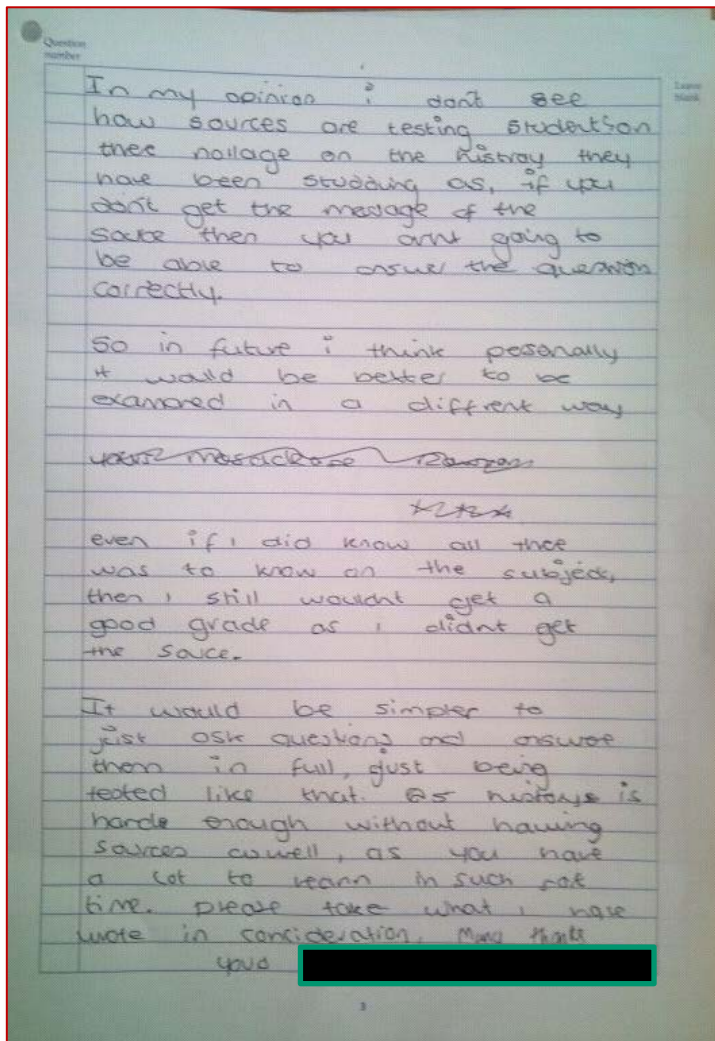 Question
number
Leave
blank
In my opinion i dont see
how sources are testing students on
thee nollage on the histray they
have been studding as, if you
don't get the message of the
source then you arnt going to
be able to answer the question
correctly.
So in future i think pesonally
it would be better to be
examored in a diffrent way
even if i did know all thee
was to know on the subject,
then i still wouldnt get a
good grade as i didnt get
the souce.
It would be simpler to
just ask questions and answer
them in full, just being
tested like that. as is
harde enough without having
sources aswell, as you have
a lot to learn in such
time. please take what i have
wrote in concideration. Many thanks
3